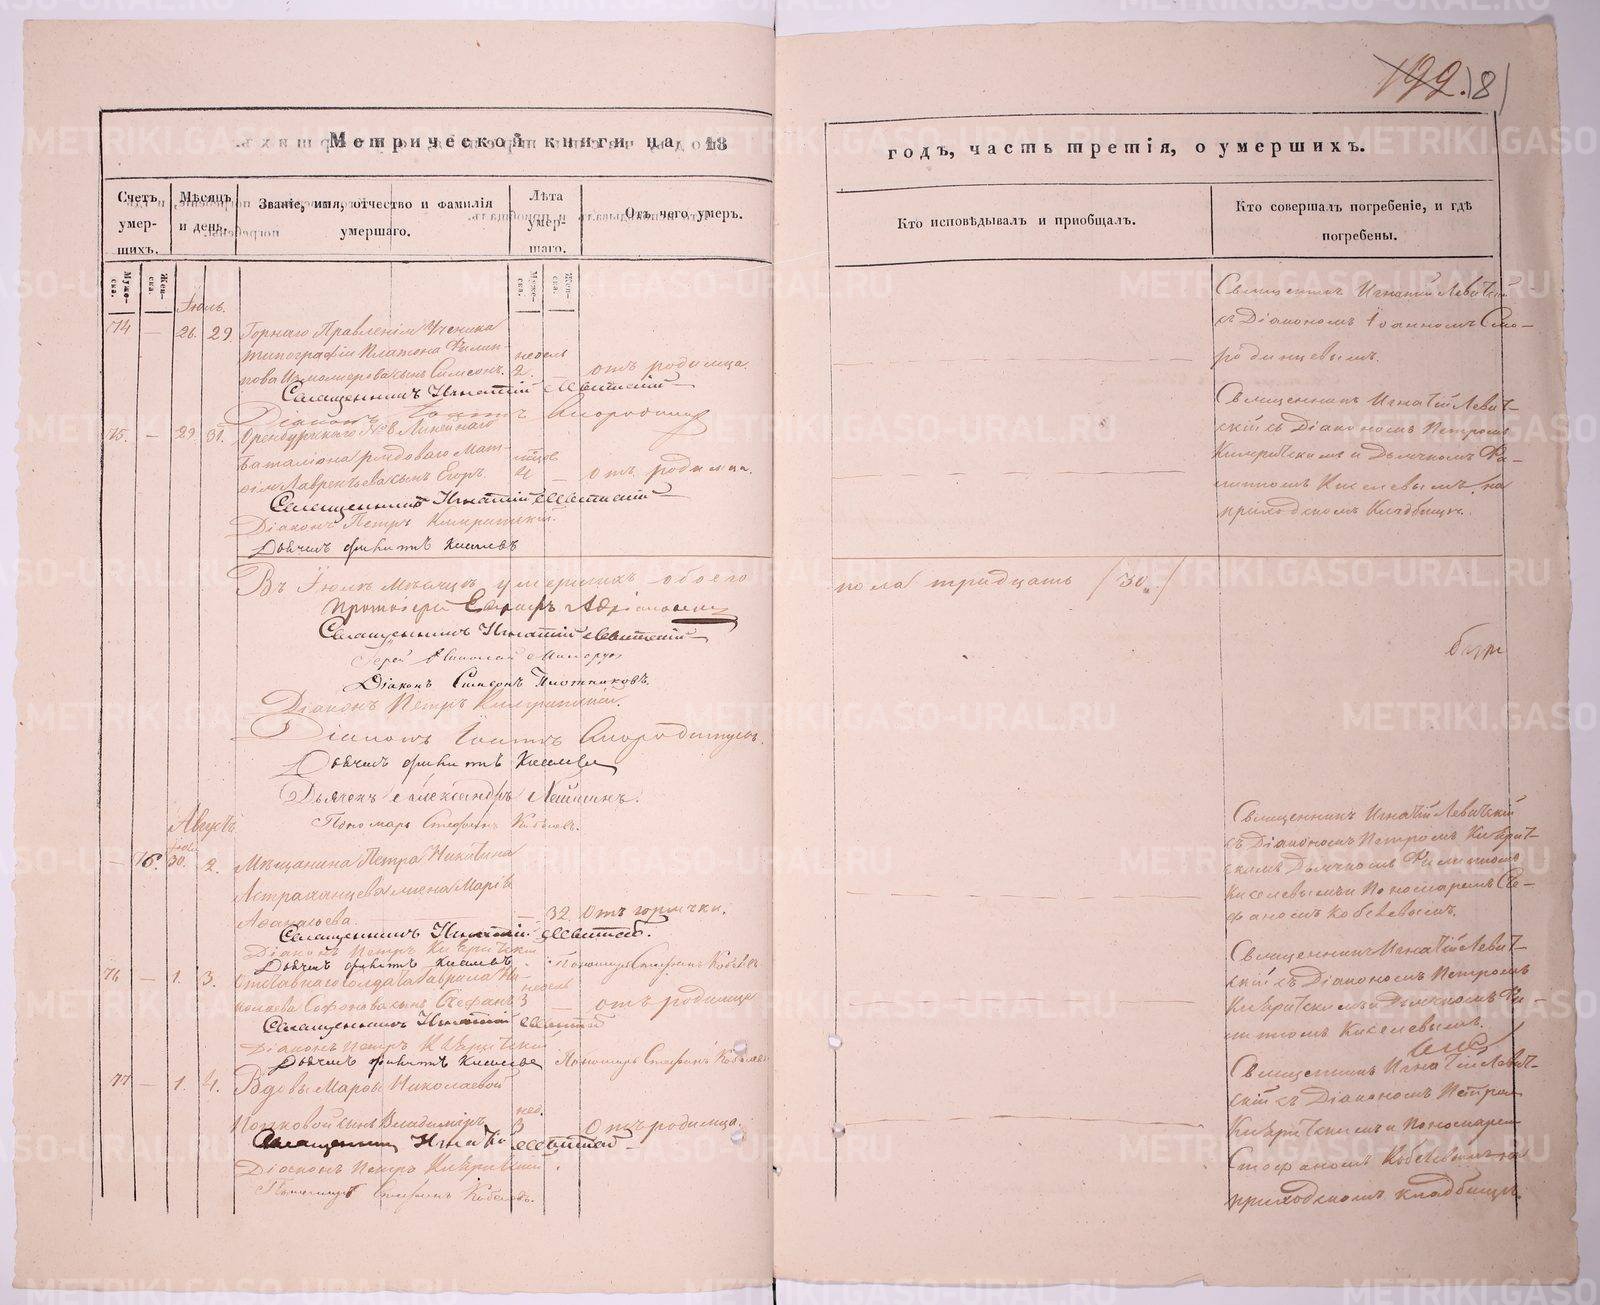 199. 8
Метрической книги на 18
годъ, часть третія, о умершихъ.
Счетъ умер-
шихъ.
Мѣсяцъ
и день.
Званіе, имя, отчество и фамилія
умершаго.
Лѣта
умер-
шаго.
Отъ чего умеръ.
Кто исповѣдывалъ и приобщалъ.
Кто совершалъ погребеніе, и гдѣ
погребены.
Муже-
ска.
Жен-
ска.
Муже-
ска.
Жен-
ска.
Іюль.
74 — 26. 29. Горнаго Правленія Ученика
типографіи Платона Филип-
пова Измоперова сынъ Симеонъ.
недель
2. — отъ родимца.
Священникъ Игнатій Левитскій
Діаконъ Іоаннъ Смородинцевъ
Священникъ Игнатій Левитскій
съ Діакономъ Іоанномъ Смо-
родинцевымъ.
75. — 29. 31. Оренбургскаго №8 Линейнаго
баталіона рядоваго Мат-
фія Лаврентьева сынъ Егоръ.
4 — отъ родимца.
Священникъ Игнатій Левитскій
Діаконъ Петръ
Дьячекъ Филиппъ Киселевъ
Священникъ Игнатій Левит-
скій съ Діакономъ Петромъ
и Дьячкомъ Фи-
липпомъ Киселевымъ, на
приходскомъ кладбищѣ.
Въ Іюлѣ мѣсяцѣ умершихъ обоего
пола тридцать /30./
Протоіерей
Священникъ Игнатій Левитскій
Іерей Николай
Діаконъ Симеонъ Плотниковъ.
Діаконъ Петръ
Діаконъ Іоаннъ Смородинцевъ.
Дьячекъ Филиппъ Киселевъ
Дьячекъ Александръ
Пономарь Стефанъ Кобелевъ.
Августъ
— 76. 30. 2. Мѣщанина Петра Никитина
Астраханцева жена Марія
Афанасьева. — 32 Отъ горячки.
Священникъ Игнатій Левитскій.
Діаконъ Петръ
Дьячекъ Филиппъ Киселевъ. Пономарь Стефанъ Кобелевъ
Священникъ Игнатій Левитскій
съ Діакономъ Петромъ
Дьячкомъ Филиппомъ
Киселевымъ и Пономаремъ Сте-
фаномъ Кобелевымъ.
76 — 1. 3. Отставнаго солдата Гаврила Ни-
колаева Софонова сынъ Стефанъ
недель
3 — отъ родимца
Священникъ Игнатій Левитскій
Діаконъ Петръ
Дьячекъ Филиппъ Киселевъ Пономарь Стефанъ Кобелевъ
Священникъ Игнатій Левит-
скій съ Діакономъ Петромъ
и Дьячкомъ Фи-
липпомъ Киселевымъ.
77 — 1. 4. Вдовы Марфы Николаевой
Попковой сынъ Владимиръ
нед.
3 Отъ родимца.
Священникъ Игнатій Левитскій
Діаконъ Петръ
Пономарь Стефанъ Кобелевъ.
Священникъ Игнатій Левит-
скій съ Діакономъ Петромъ
и Пономаремъ
Стефаномъ Кобелевымъ на
приходскомъ кладбищѣ.
METRIKI.GASO-URAL.RU